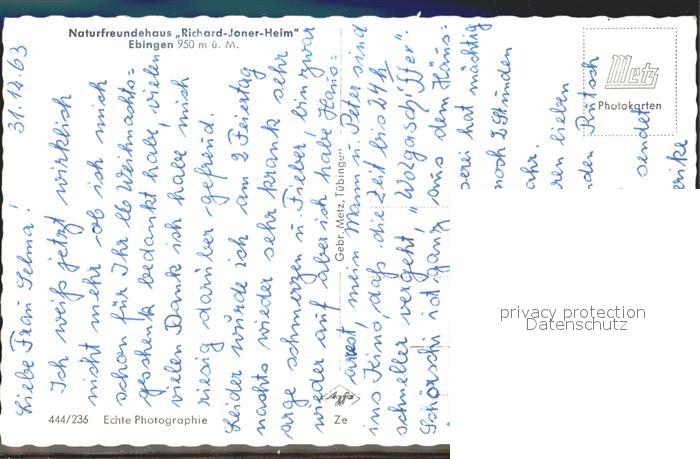 Naturfreundehaus „Richard-Joner-Heim"
Ebingen 950 m ü. M.
Metz
Photokarten
31.12.63
Liebe Frau Selma!
Ich weiß jetzt wirklich
nicht mehr ob ich mich
schon für Ihr lb Weihnachts=
geschenk bedankt habe, vielen
vielen Dank ich habe mich
riesig darüber gefreud.
Leider wurde ich am 2 Feiertag
nachts wieder sehr krank sehr
arge schmerzen u. Fieber, bin zwar
wieder auf aber ich habe Haus=
arrest, mein Mann u. Peter sind
ins Kino, daß die Zeit bis 24 h
schneller vergeht, "Wolgaschiffer".
ist ganz aus dem Häus=
hat mächtig
noch 2 Stunden
ahr.
ren lieben
den Rutsch
sendet
erike
Gebr. Metz, Tübingen
Agfa
444/236 Echte Photographie Ze
privacy protection
Datenschutz